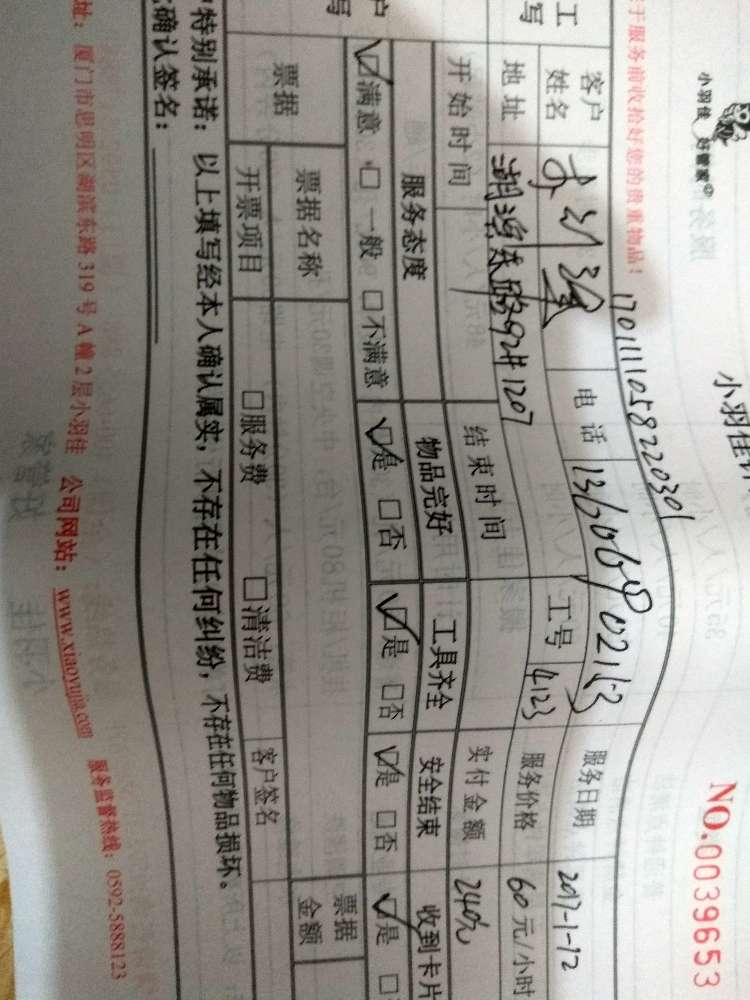 小羽佳 好管家
NO.0039653
于服务前收拾好您的贵重物品!
1701111058220301
工
写
客户姓名
电话
服务日期 2017-1-12
地址 湖滨东路92# 1207
工号 4123
服务价格 60元/小时
开始时间
结束时间
实付金额 240元
户
写
服务态度 物品完好 工具齐全 安全结束 收到卡片
☑满意 □一般 □不满意 ☑是 □否 ☑是 □否 ☑是 □否 ☑是
票据 票据名称 票据金额
开票项目 □服务费 □清洁费 客户签名
特别承诺:以上填写经本人确认属实,不存在任何纠纷,不存在任何物品损坏。
确认签名:
址:厦门市思明区湖滨东路319号A幢2层小羽佳 公司网站:www.xiaoyujia.com 服务监督热线:0592-5888123